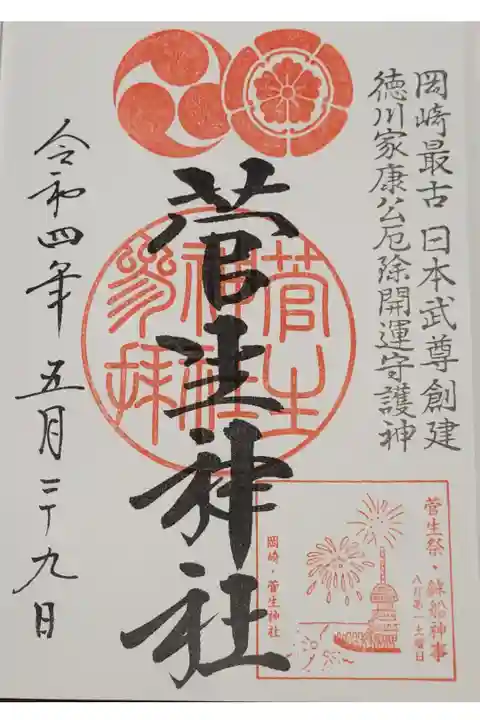 岡﨑最古 日本武尊創建
徳川家康公厄除開運守護神
菅生神社
菅生
神社
参拝
令和四年 五月二十九日
菅生祭・鉾船神事
八月第一土曜日
岡崎・菅生神社